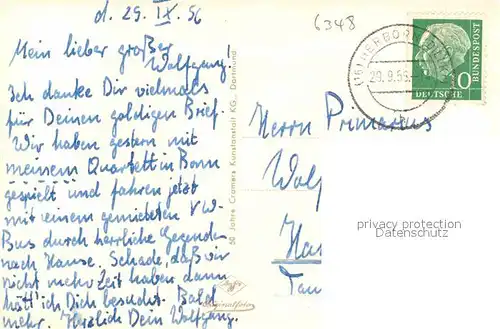 d. 29. IX. 56
6348
Mein lieber großer
Wolfgang.
Ich danke Dir vielmals
für Deinen goldigen Brief.
Wir haben gestern mit
meinem Quartett in Bonn
gespielt und fahren jetzt
mit einem gemieteten VW-
Bus durch herrliche Gegenden
nach Hause. Schade, daß wir
nicht mehr Zeit haben dann
hätt' ich Dich besucht. Bald
mehr. Herzlich Dein Wolfgang.
50 Jahre Cramers Kunstanstalt KG., Dortmund
Originalfoto
HERBORN
29.9.56
DEUTSCHE
BUNDESPOST
0
Herrn Primarius
Wolf
Ha
Tau
privacy protection
Datenschutz